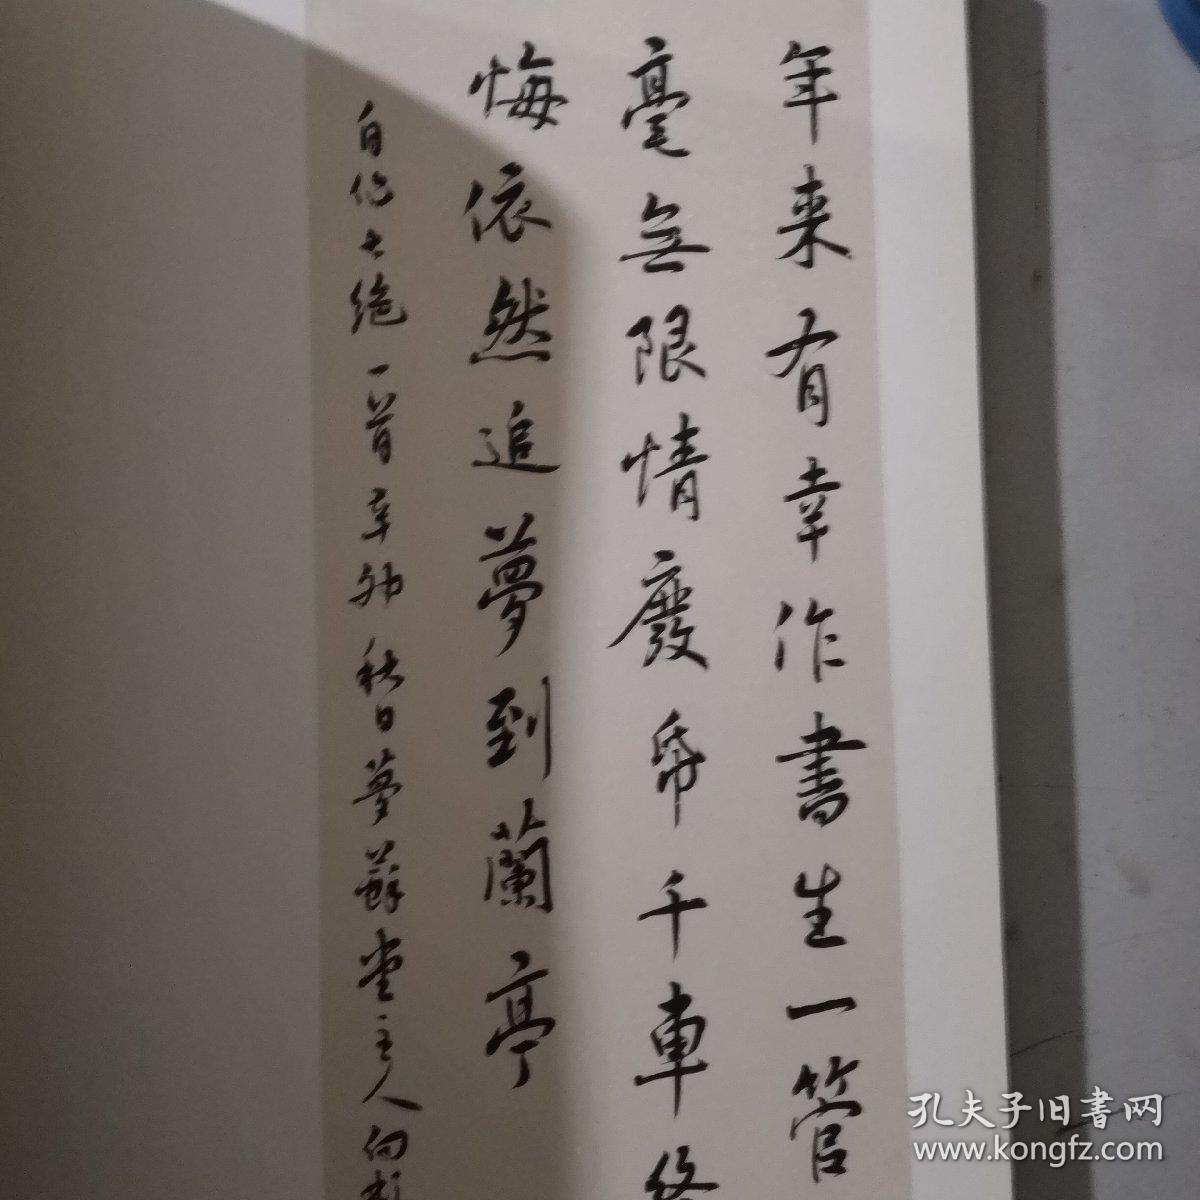 年来有幸作書生一管
毫無限情廢帋千車終
悔依然追夢到蘭亭
自作七绝一首辛卯秋日夢蘇堂主人向彬
孔夫子旧書网
www.kongfz.com